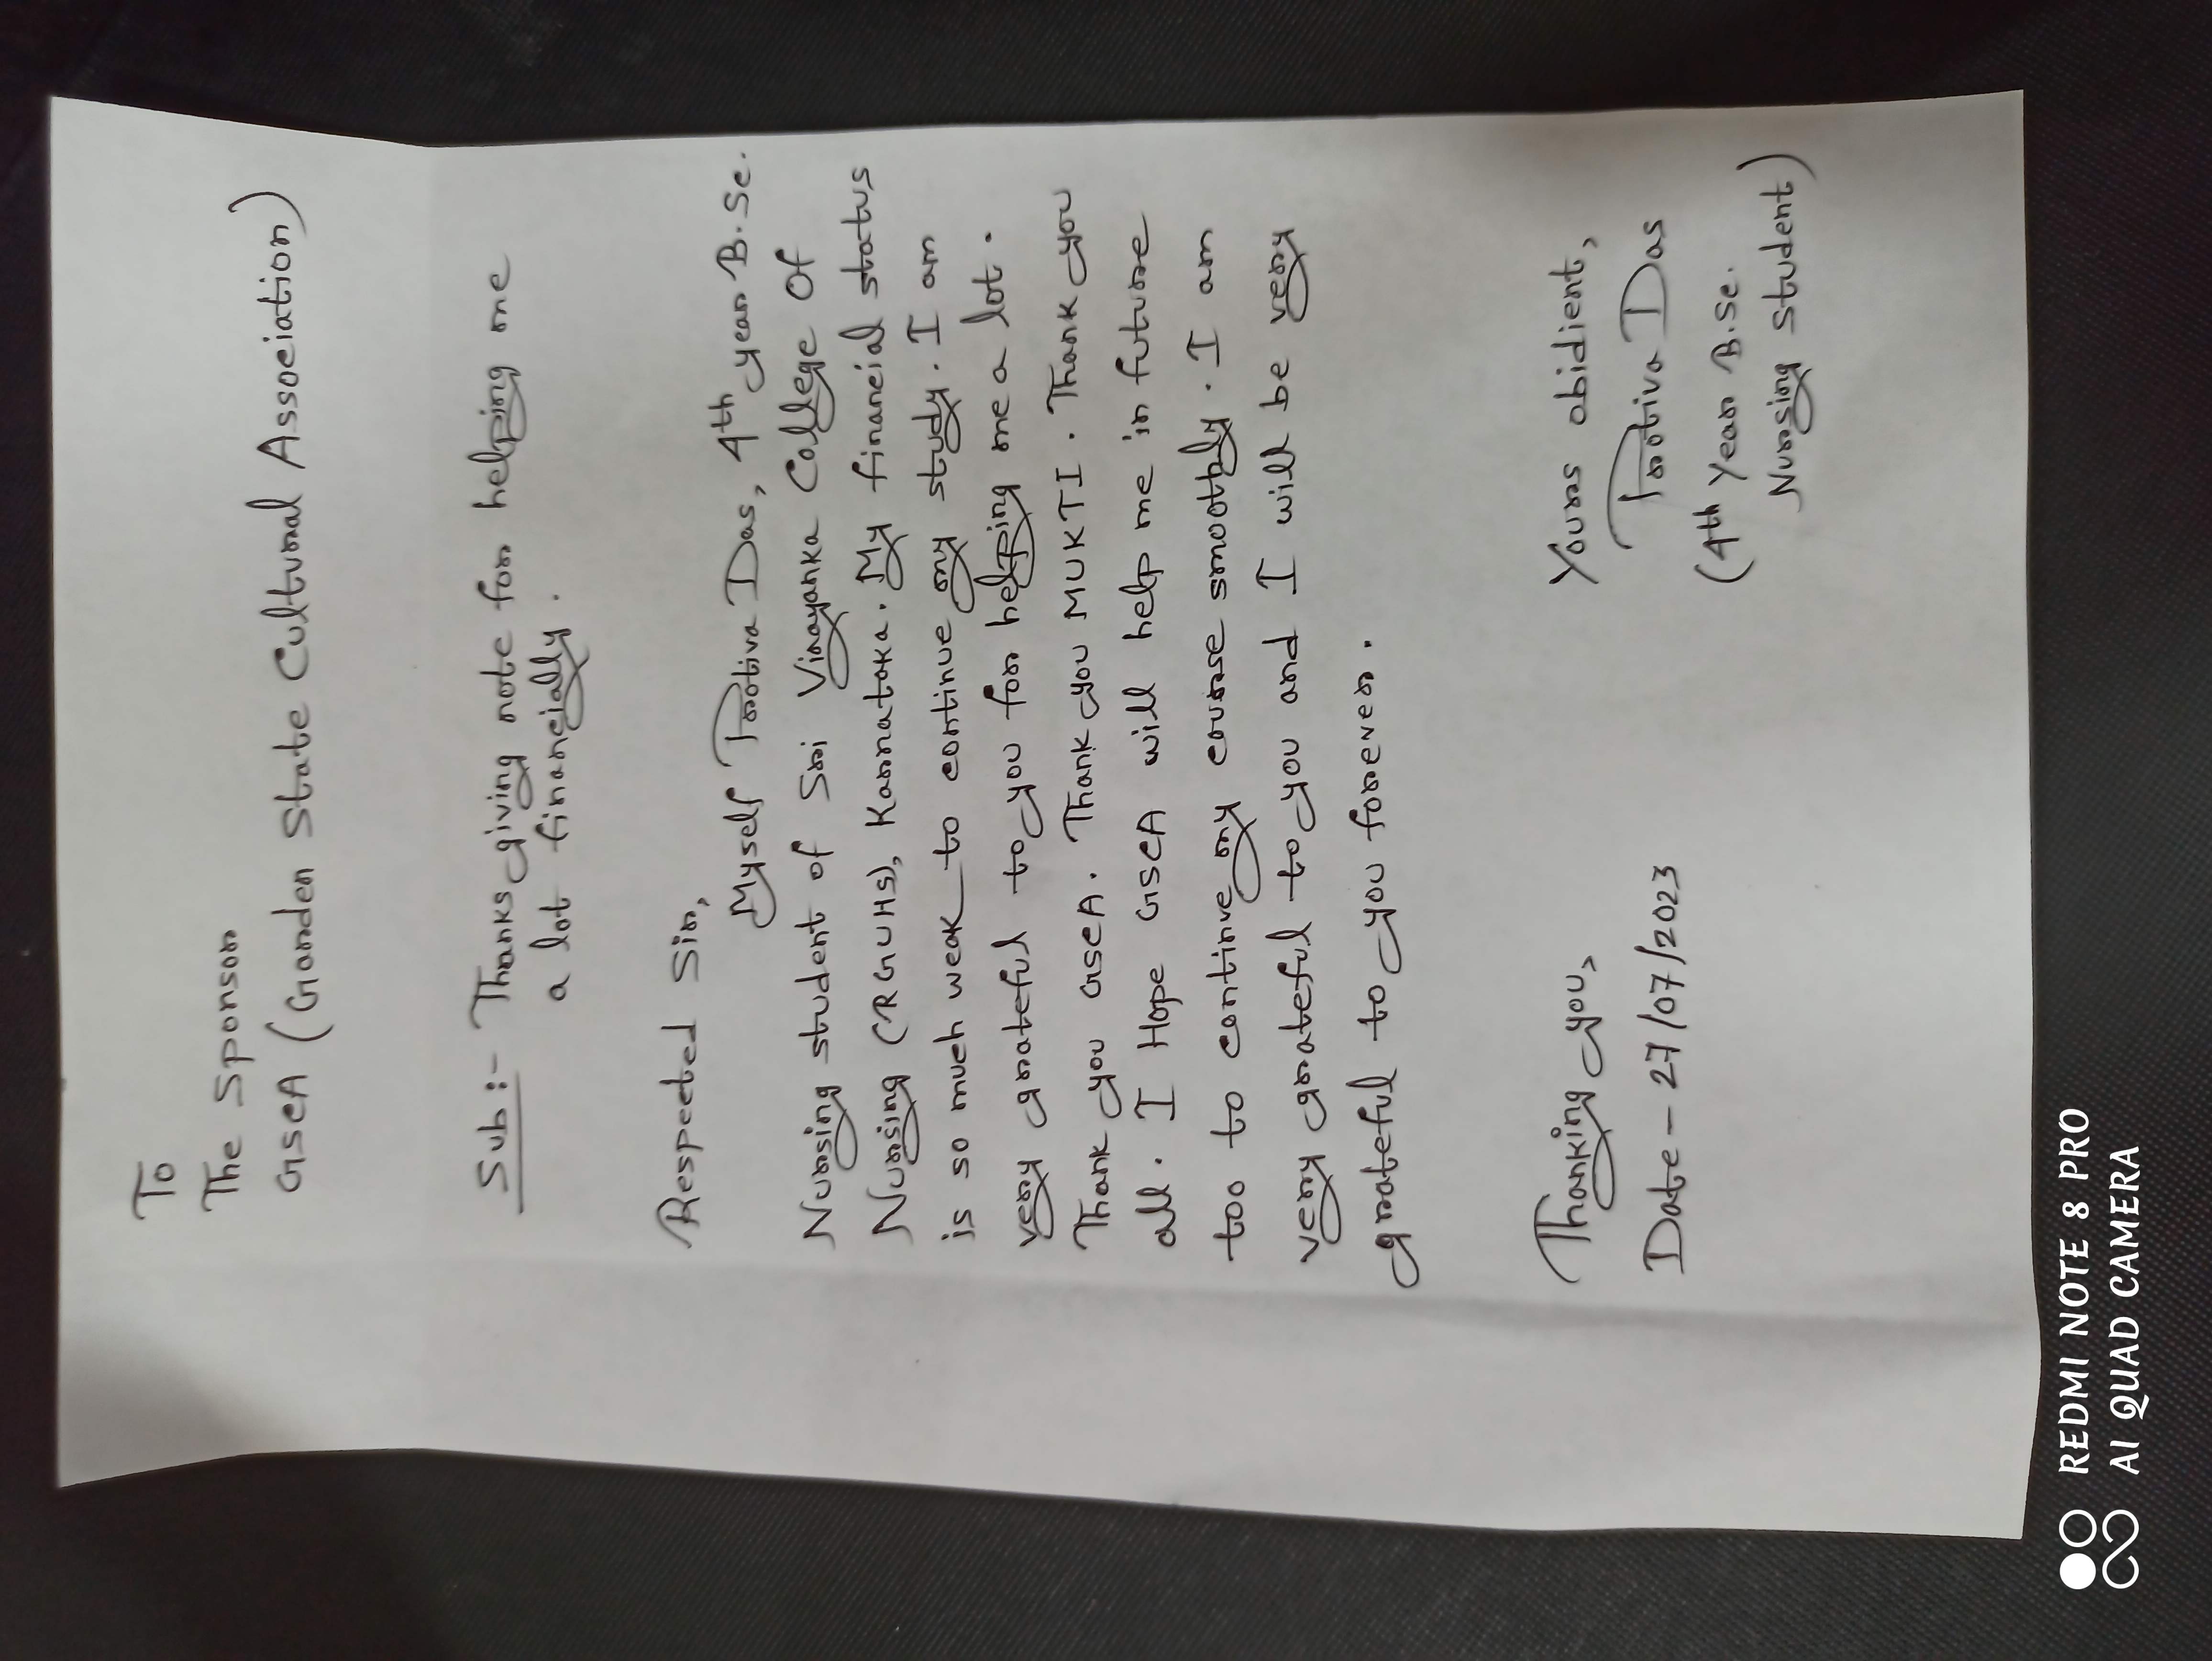 To
The Sponsor
GSCA (Garden State Cultural Association)
Sub:- Thanks giving note for helping me
a lot financially.
Respected Sir,
Myself Protiva Das, 4th year B.Sc.
Nursing student of Sri Vinayanka College Of
Nursing (RGUHS), Karnataka. My financial status
is so much weak to continue my study. I am
very grateful to you for helping me a lot.
Thank you GSCA. Thank you MUKTI. Thank you
all. I Hope GSCA will help me in future
too to continue my course smoothly. I am
very grateful to you and I will be very
grateful to you forever.
Thanking you,
Date - 27/07/2023
Yours obidient,
Protiva Das
(4th Year B.Sc.
Nursing student)
REDMI NOTE 8 PRO
AI QUAD CAMERA